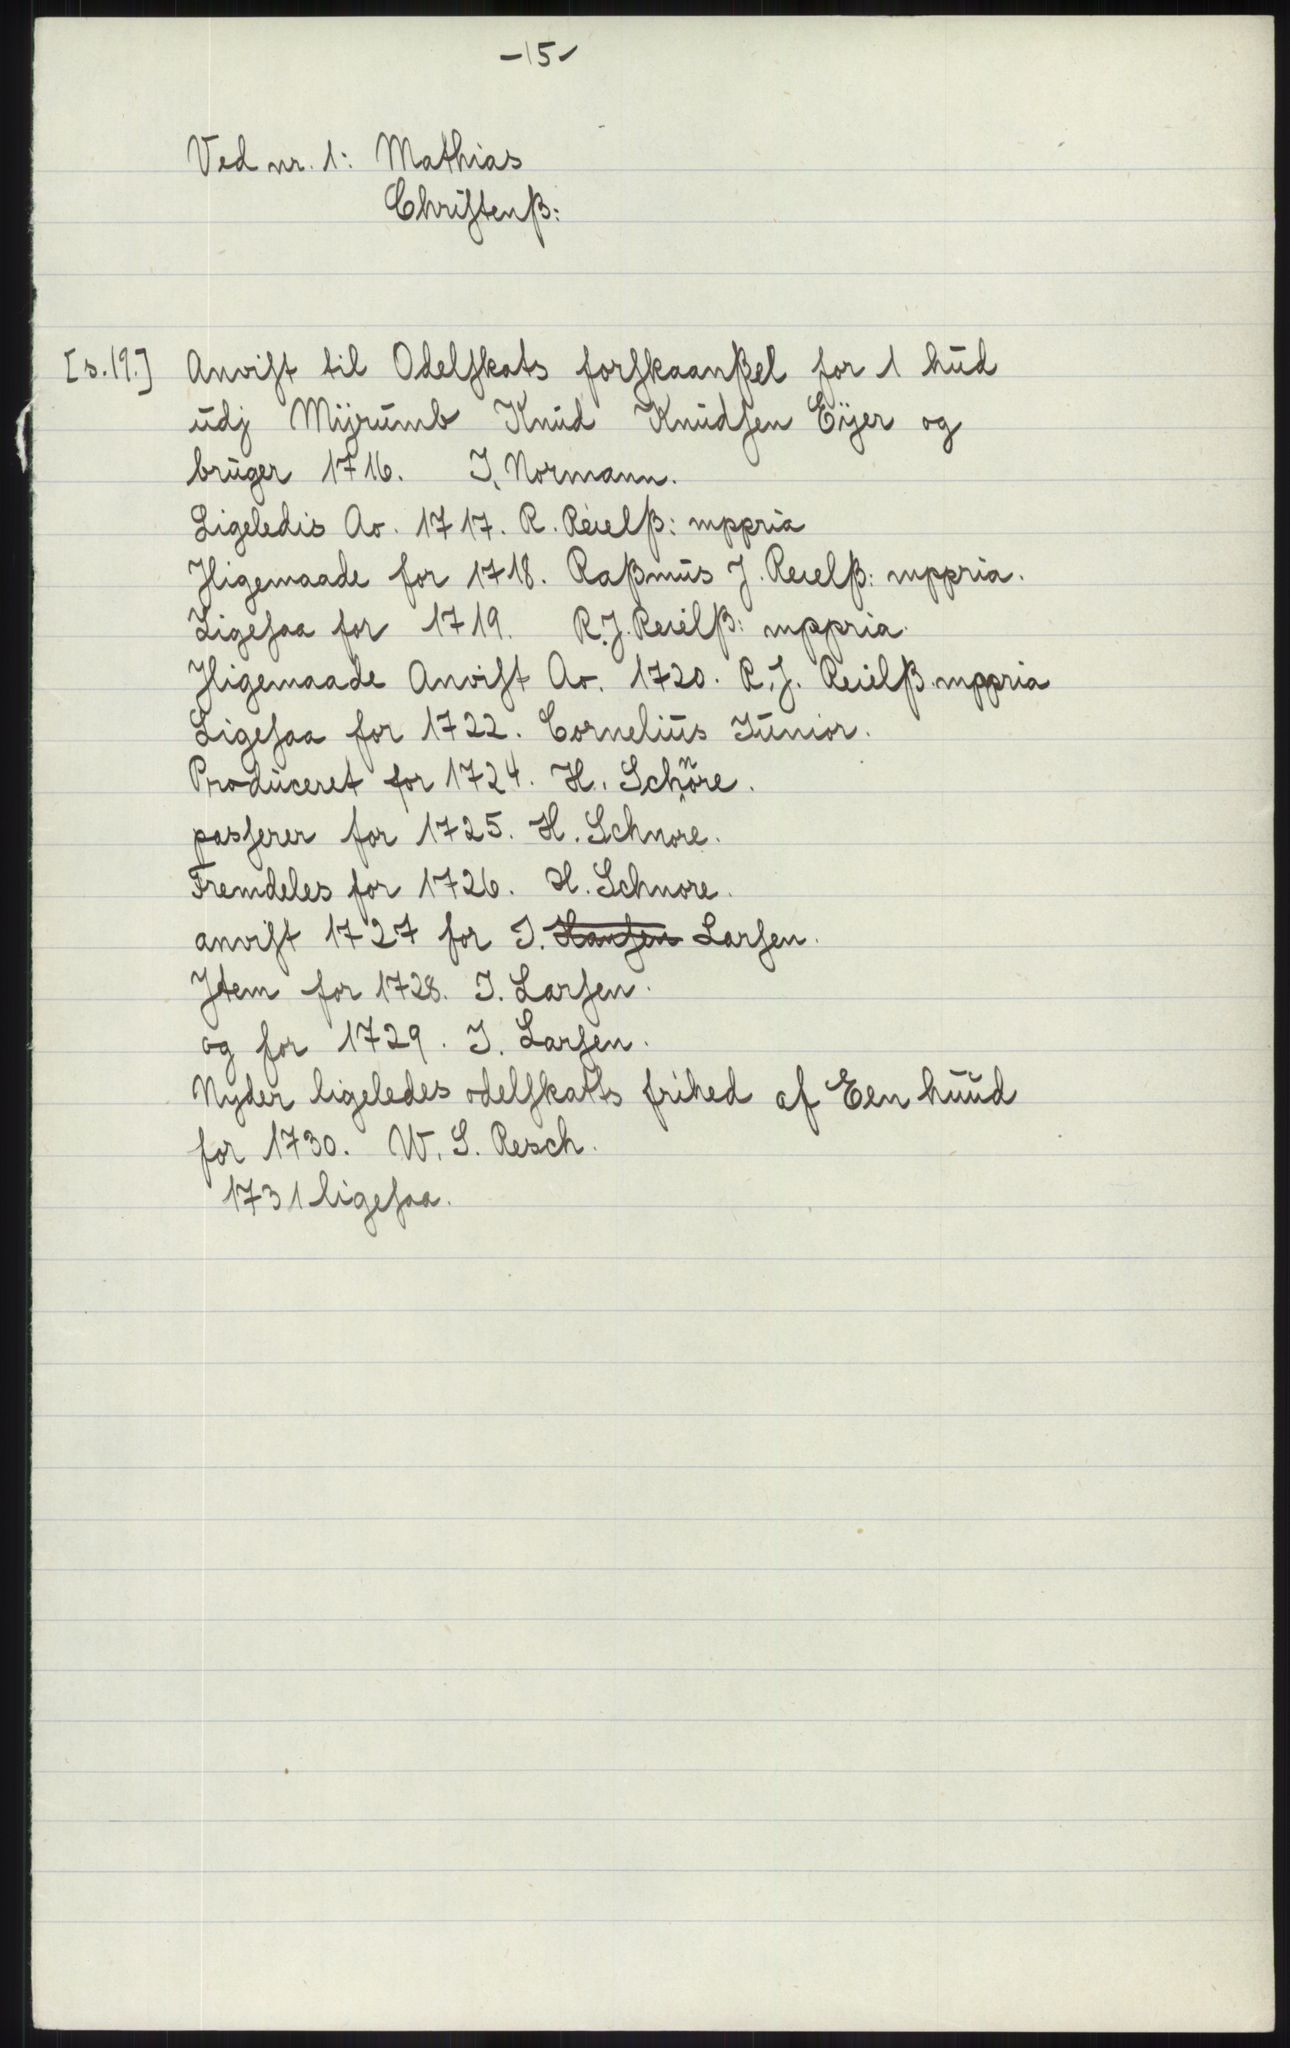 -15-
Ved nr. 1: Mathias
Christenß:
[s.19.] Anvist til Odelskats forskaanßel for 1 hud
udj Mÿrumb Knud Knudsen Eÿer og
bruger 1716. I. Normann.
Ligeledis Ao. 1717. R. Reielß: mppria
Jligemaade for 1718. Raßmus J. Reielß: mppria.
Ligesaa for 1719. R.J. Reielß: mppria.
Jligemaade Anvist Ao. 1720. R.J. Reielß mppria
Ligesaa for 1722. Cornelius Iunior.
Produceret for 1724. H. Schnöre.
passerer for 1725. H. Schnore.
Fremdeles for 1726. H. Schnore.
anvist 1727 for I. Hansen Larsen.
Jtem for 1728. I. Larsen.
og for 1729. I. Larsen.
Nyder ligeledes odelskatts frihed af Een huud
for 1730. W. S. Resch.
1731 ligesaa.